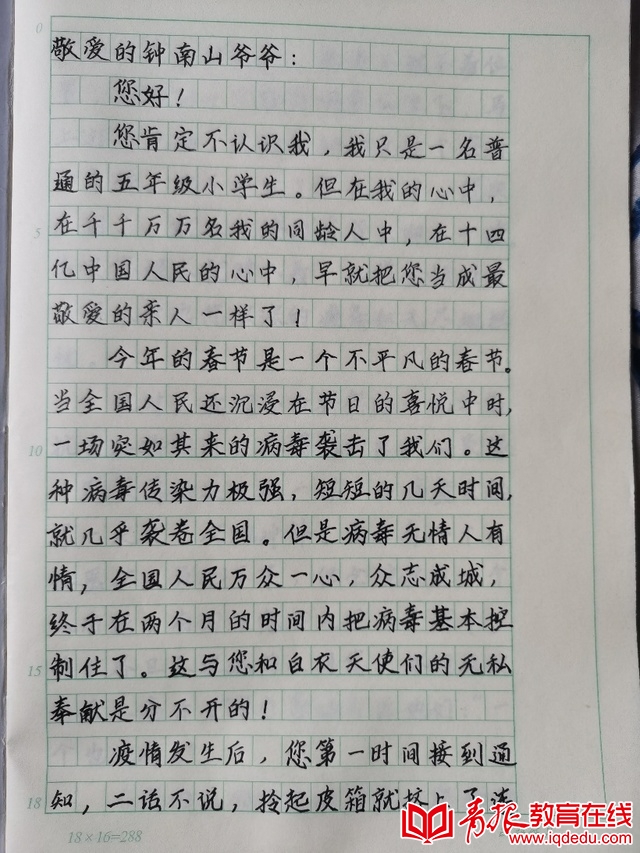 0
敬爱的钟南山爷爷：
您好！
您肯定不认识我，我只是一名普
通的五年级小学生。但在我的心中，
在千千万万名我的同龄人中，在十四
5
亿中国人民的心中，早就把您当成最
敬爱的亲人一样了！
今年的春节是一个不平凡的春节。
当全国人民还沉浸在节日的喜悦中时，
一场突如其来的病毒袭击了我们。这
10
种病毒传染力极强，短短的几天时间，
就几乎袭卷全国。但是病毒无情人有
情，全国人民万众一心，众志成城，
终于在两个月的时间内把病毒基本控
制住了。这与您和白衣天使们的无私
15
奉献是分不开的！
疫情发生后，您第一时间接到通
知，二话不说，拎起皮箱就挤上了
18
18×16=288
青报教育在线
www.iqdedu.com